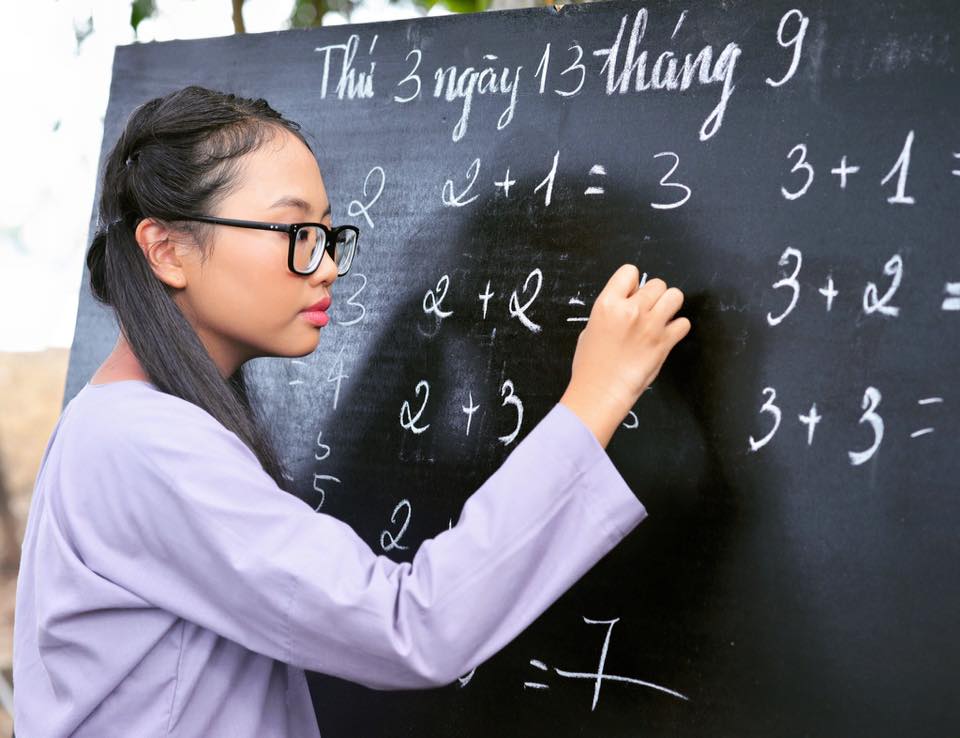 Thứ 3 ngày 13 tháng 9
2 2 + 1 = 3 3 + 1 =
3 2 + 2 = 3 + 2 =
= 4 2 + 3 5 3 + 3 =
5
5 2 +
= 7